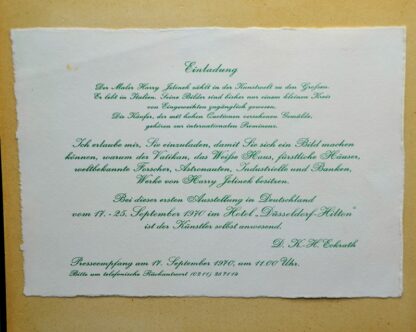 Einladung
Der Maler Harry Jelinek zählt in der Kunstwelt zu den Großen.
Er lebt in Italien. Seine Bilder sind bisher nur einem kleinen Kreis
von Eingeweihten zugänglich gewesen.
Die Käufer, der mit hohen Quotienten versehenen Gemälde,
gehören zur internationalen Prominenz.
Ich erlaube mir, Sie einzuladen, damit Sie sich ein Bild machen
können, warum der Vatikan, das Weiße Haus, fürstliche Häuser,
weltbekannte Forscher, Astronauten, Industrielle und Banken,
Werke von Harry Jelinek besitzen.
Bei dieser ersten Ausstellung in Deutschland
vom 17. - 25. September 1970 im Hotel „Düsseldorf-Hilton"
ist der Künstler selbst anwesend.
D. K.-H. Eckrath
Presseempfang am 17. September 1970, um 11.00 Uhr.
Bitte um telefonische Rückantwort (0211)